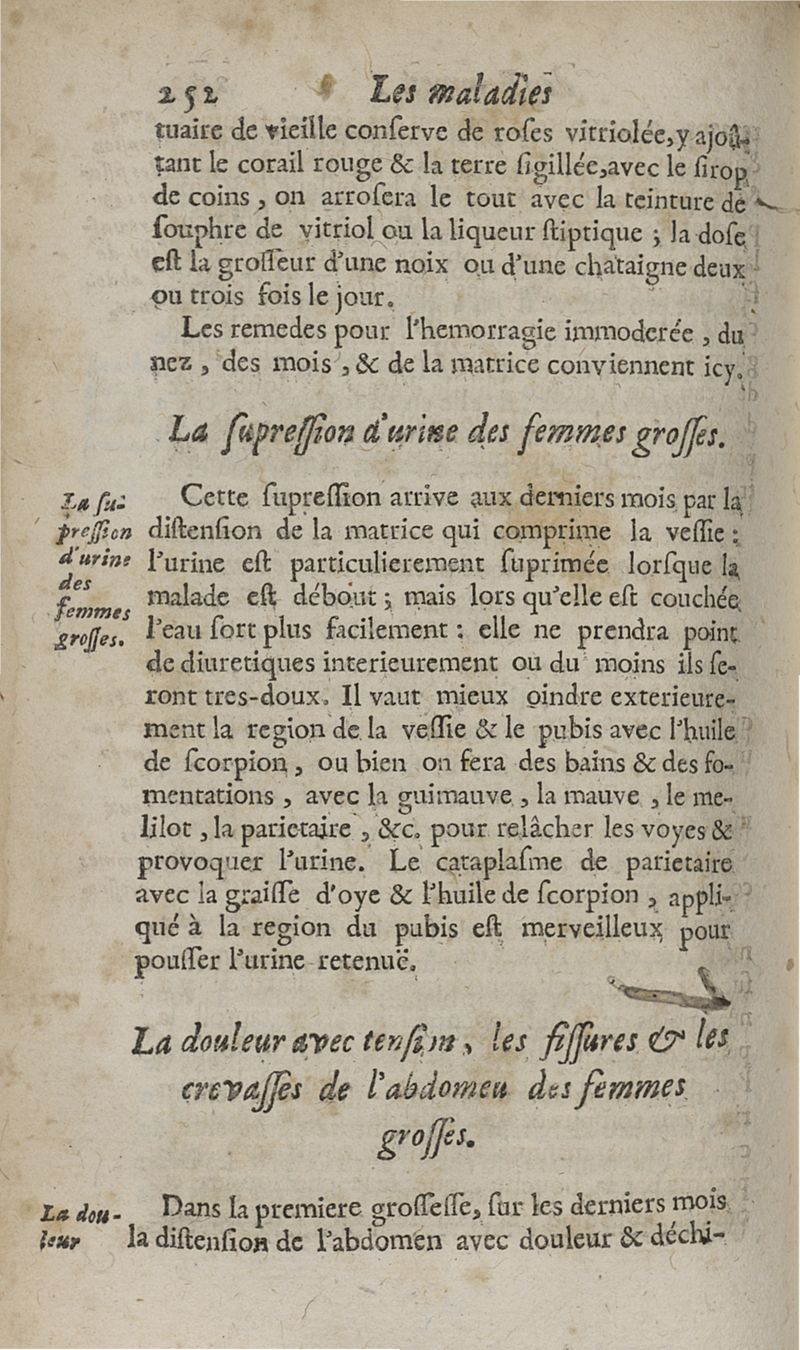 252 Les maladies
tuaire de vieille conſerve de roſes vitriolée, y ajoû-
tant le corail rouge & la terre ſigillée, avec le ſirop
de coins, on arroſera le tout avec la teinture de
ſouphre de vitriol ou la liqueur ſtiptique ; la doſe
eſt la groſſeur d'une noix ou d'une chataigne deux
ou trois fois le jour.
Les remedes pour l'hemorragie immoderée, du
nez, des mois, & de la matrice conviennent icy.
La ſupreſſion d'urine des femmes groſſes.
La ſu-
preſſion
d'urine
des
femmes
groſſes.
Cette ſupreſſion arrive aux derniers mois par la
diſtenſion de la matrice qui comprime la veſſie :
l'urine eſt particulierement ſuprimée lorſque la
malade eſt débout ; mais lors qu'elle eſt couchée
l'eau ſort plus facilement : elle ne prendra point
de diuretiques interieurement ou du moins ils ſe-
ront tres-doux. Il vaut mieux oindre exterieure-
ment la region de la veſſie & le pubis avec l'huile
de ſcorpion, ou bien on fera des bains & des fo-
mentations, avec la guimauve, la mauve, le me-
lilot, la parietaire, &c. pour relâcher les voyes &
provoquer l'urine. Le cataplaſme de parietaire
avec la graiſſe d'oye & l'huile de ſcorpion, appli-
qué à la region du pubis eſt merveilleux pour
pouſſer l'urine retenuë.
La douleur avec tenſion, les fiſſures & les
crevaſſes de l'abdomen des femmes
groſſes.
La dou-
leur
Dans la premiere groſſeſſe, ſur les derniers mois
la diſtenſion de l'abdomen avec douleur & déchi-